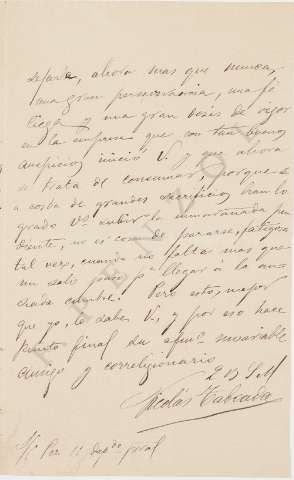 defaría, ahora mas que nunca,
una gran perseverancia, una fé
ciega y una gran dosis de vigor
en la empresa que con tan buenos
auspicios inició V. y que ahora
se trata de consumar, porque si
a costa de grandes sacrificios han lo
grado Vs subir la innominada pen
diente, no es cosa de pararse, fatigosa
tal vez, cuando no falta mas que
un solo paso pª llegar á la an
siada cumbre. Pero esto, mejor
que yo, lo sabe V., y por eso hace
punto final su afmo. invariable
amigo y correligionario
Q B S M
Nicolás Taboada